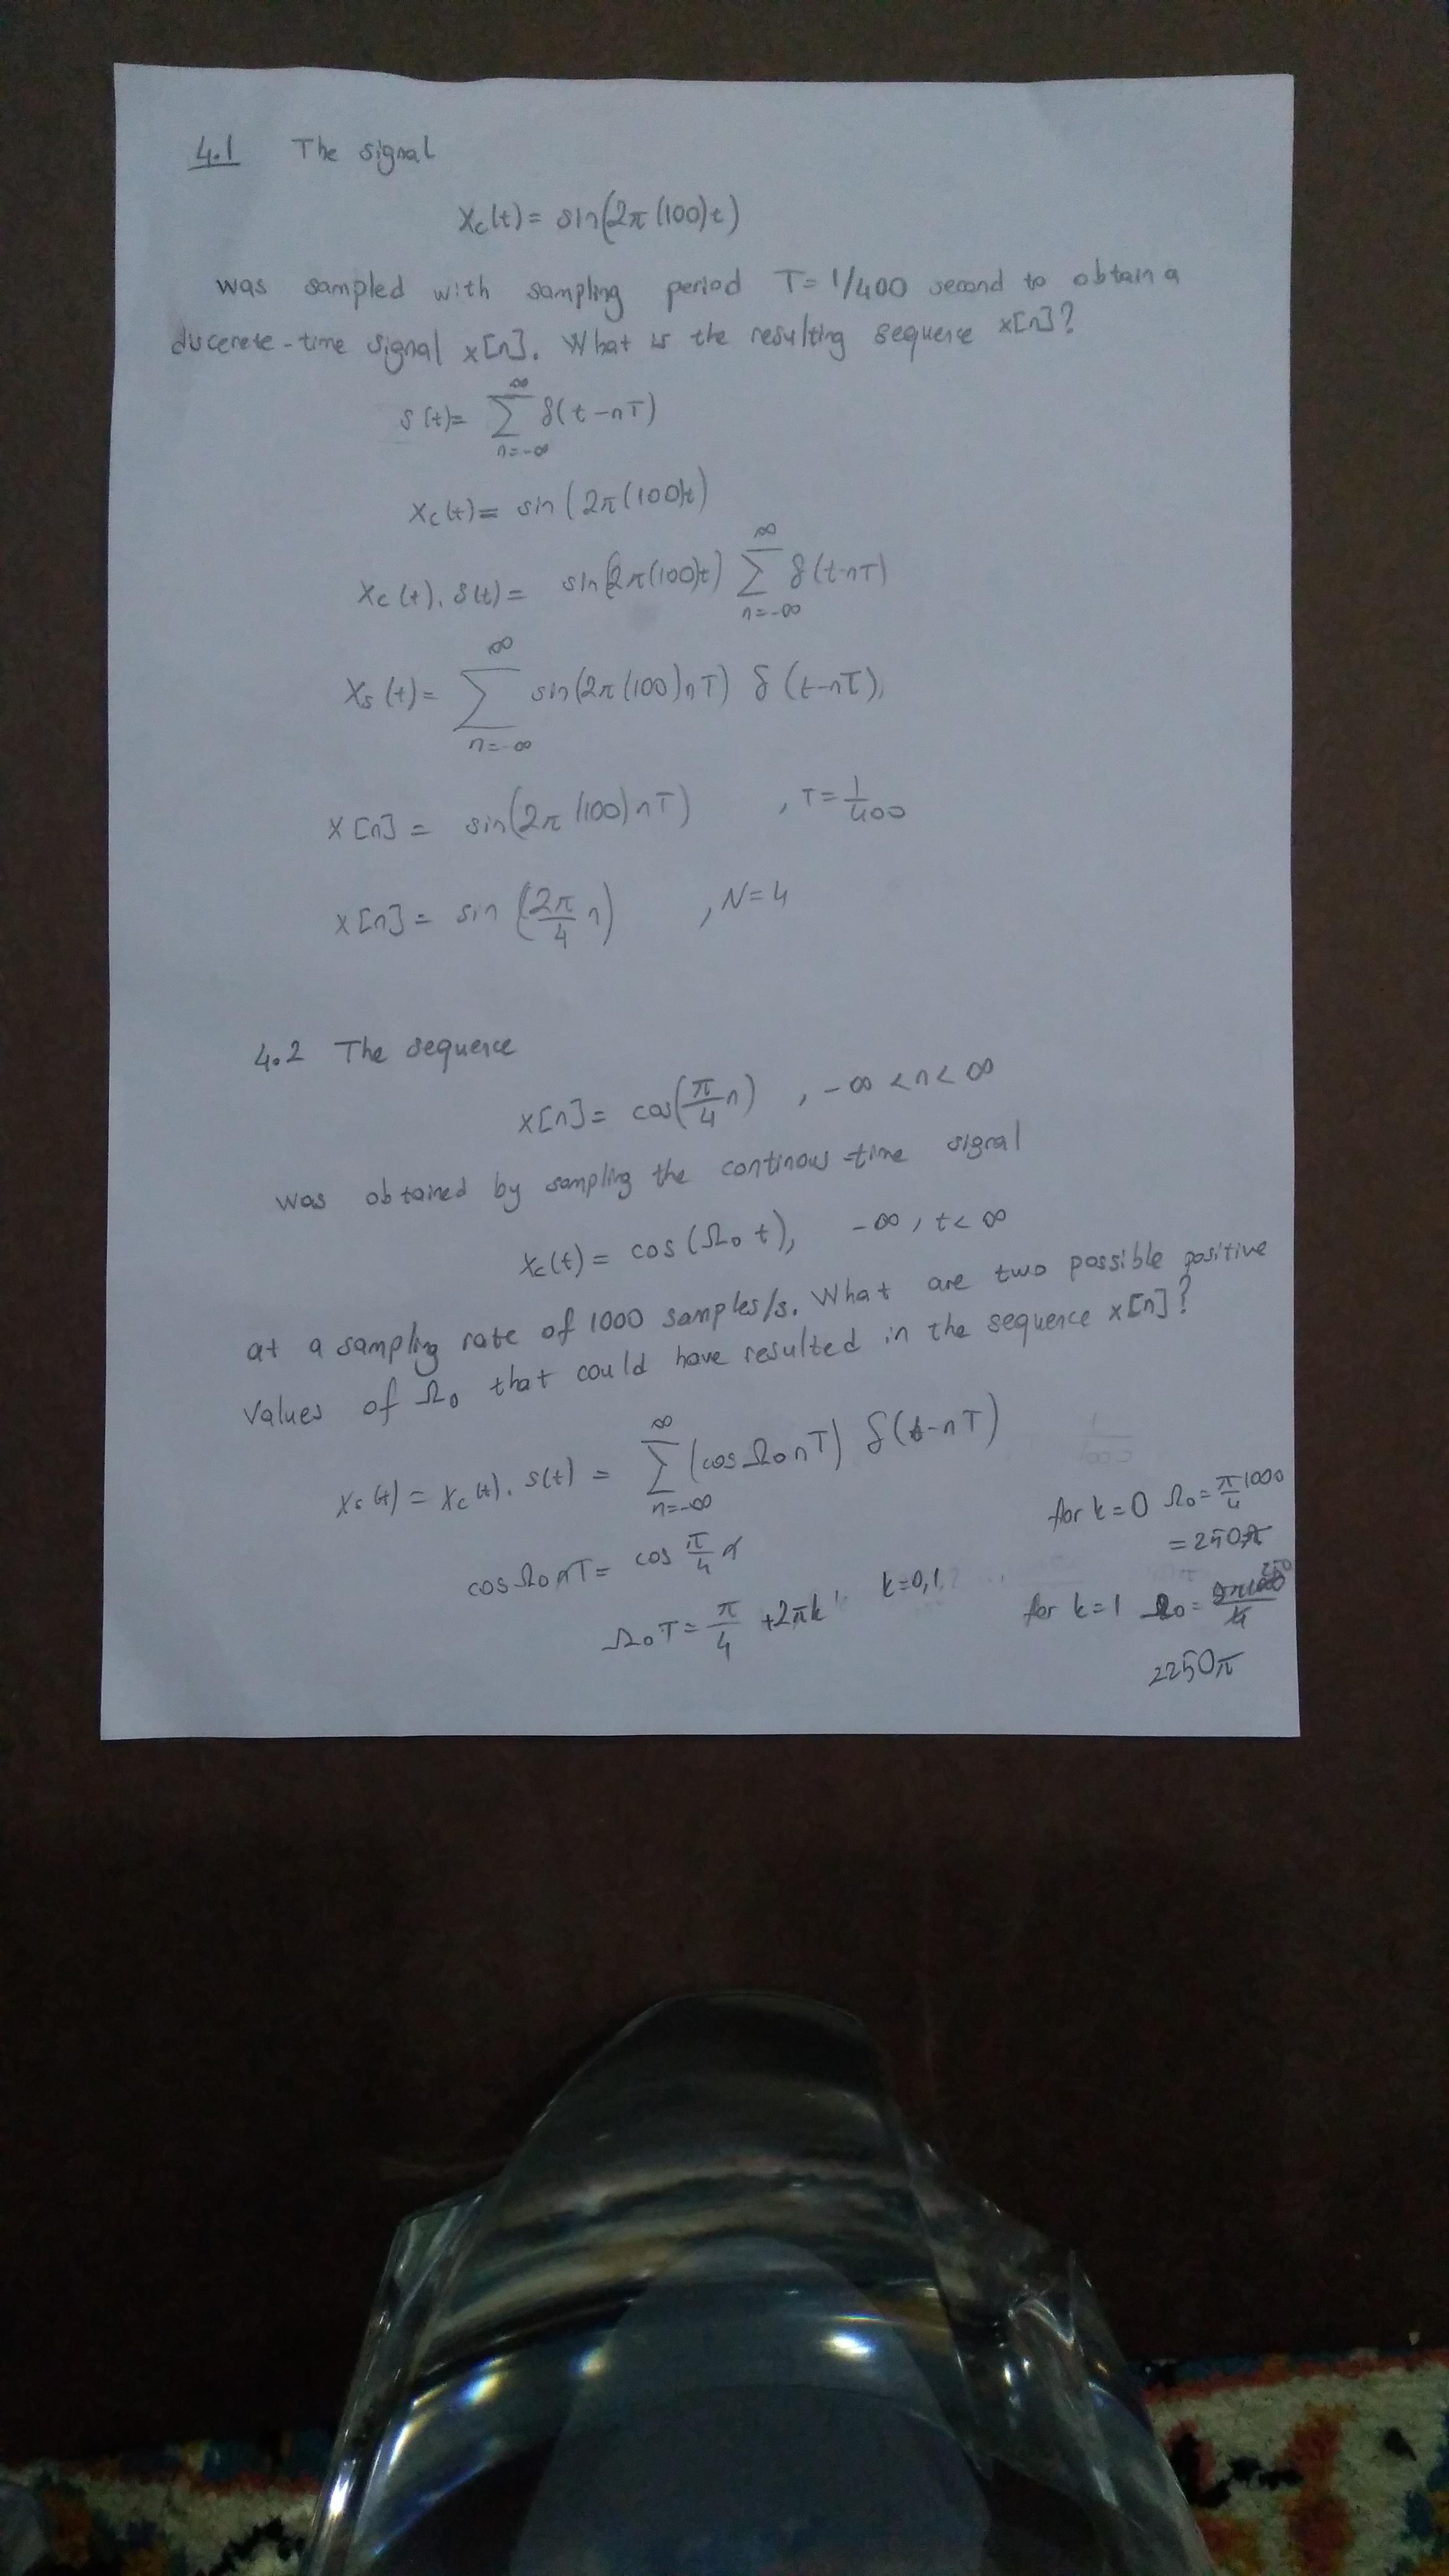 4.1 The signal
Xc(t) = sin(2π(100)t)
was sampled with sampling period T = 1/400 second to obtain a
discerete-time signal x[n]. What is the resulting sequence x[n]?
s(t) = ∑_{n=-∞}^{∞} δ(t-nT)
Xc(t) = sin(2π(100)t)
Xc(t). s(t) = sin(2π(100)t) ∑_{n=-∞}^{∞} δ(t-nT)
Xs(t) = ∑_{n=-∞}^{∞} sin(2π(100)nT) δ(t-nT)
X[n] = sin(2π(100)nT) , T = 1/400
X[n] = sin(2π/4 n) , N=4
4.2 The sequence
X[n] = cos(π/4 n) , -∞ < n < ∞
was obtained by sampling the continous-time signal
Xc(t) = cos(Ω0 t), -∞ , t < ∞
at a sampling rate of 1000 samples/s. What are two possible positive
values of Ω0 that could have resulted in the sequence x[n]?
Xs(t) = Xc(t). s(t) = ∑_{n=-∞}^{∞} (cos Ω0 nT) δ(t-nT)
cos Ω0 nT = cos π/4 n
Ω0 T = π/4 + 2πk k=0,1
for k=0 Ω0 = π/4 1000
= 250π
for k=1 Ω0 =
2250π